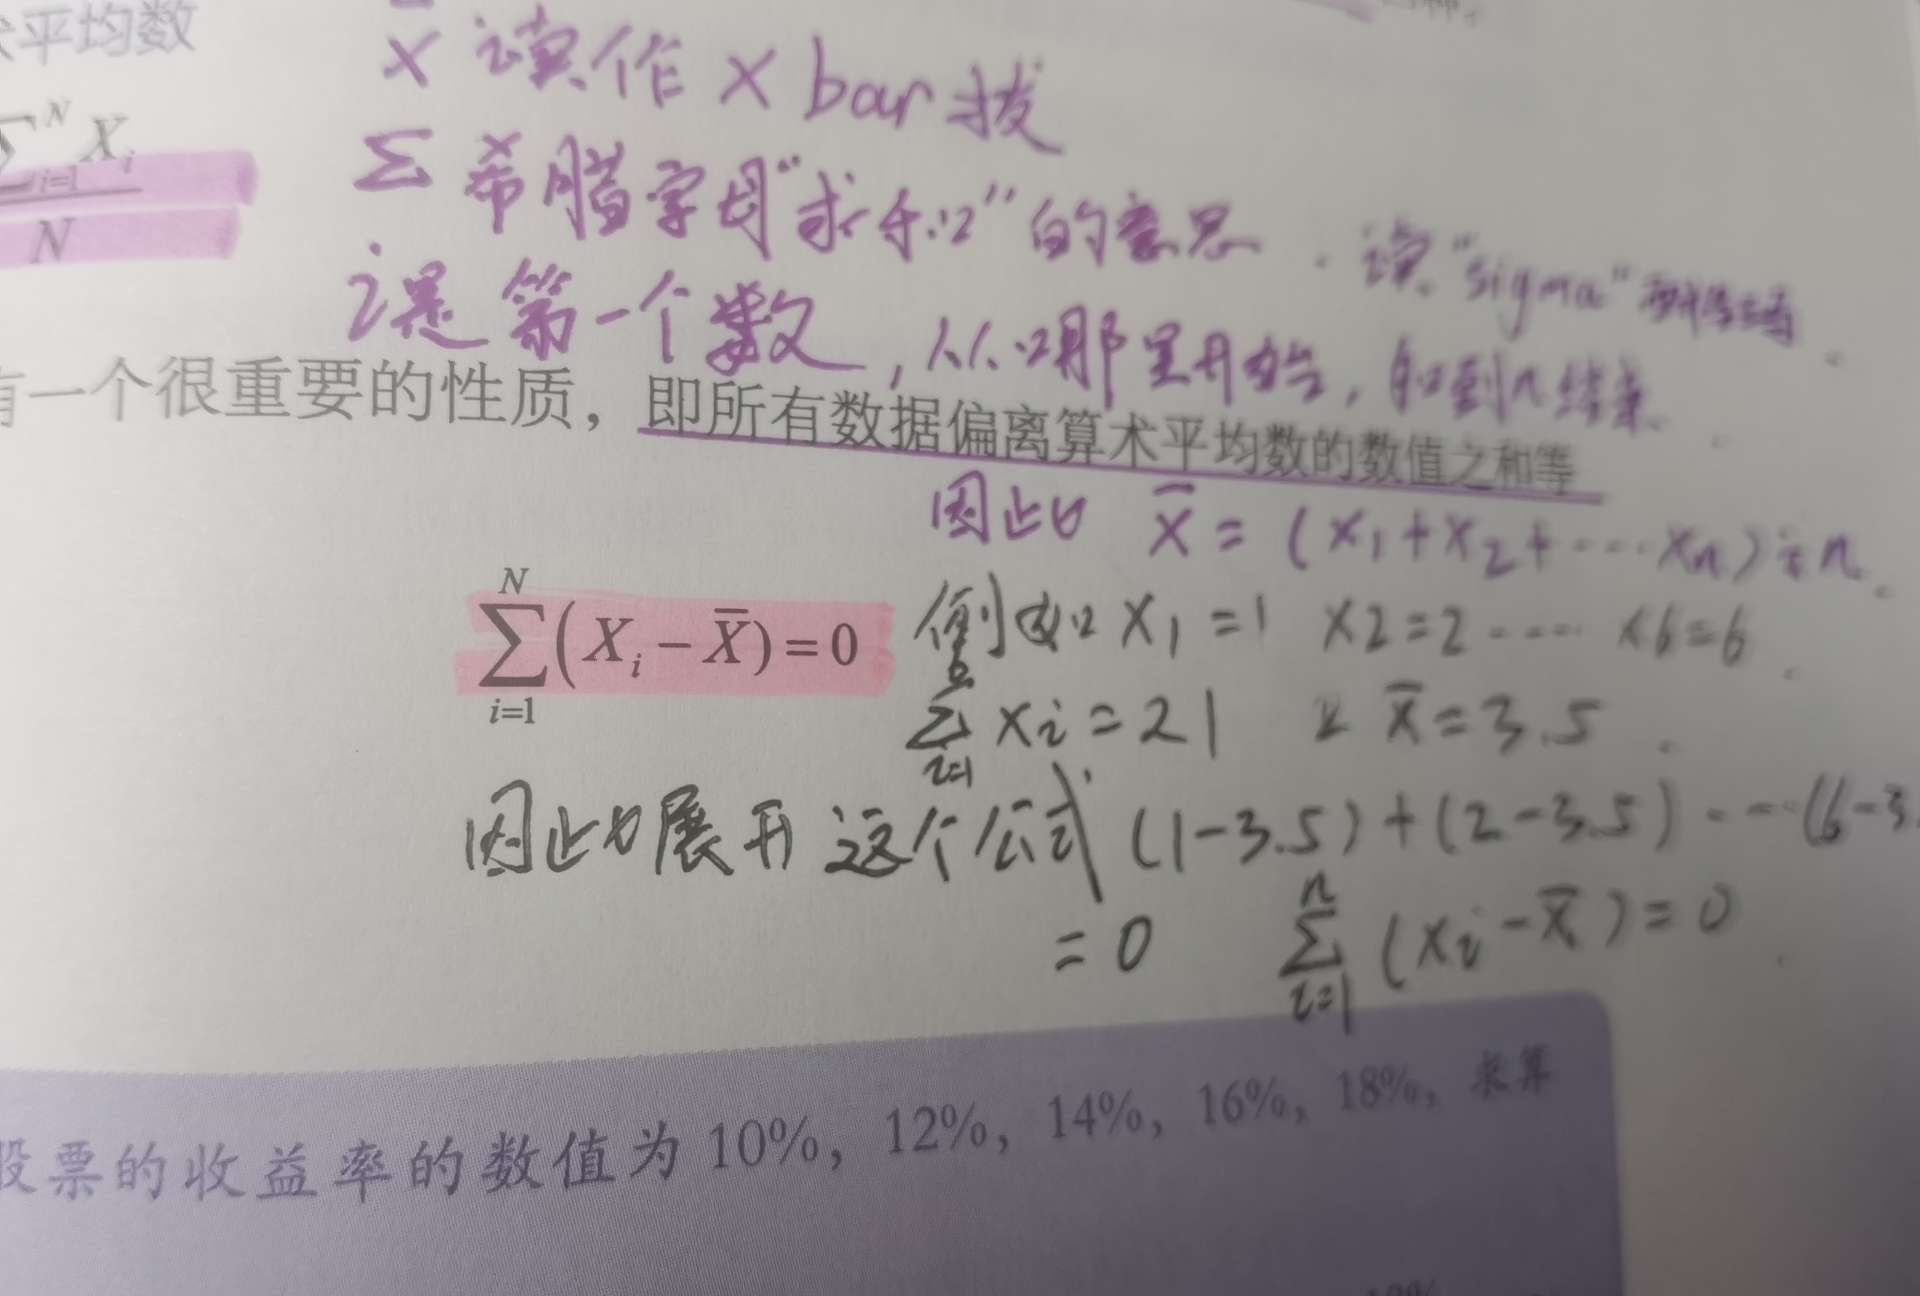 术平均数
X̄ 读作 X bar 拔
∑_{i=1}^{N} X_i
N
∑ 希腊字母“求和”的意思. 读“sigma”
i是第一个数, 从哪里开始, 和到n结束.
有一个很重要的性质，即所有数据偏离算术平均数的数值之和等
因此 X̄ = (X₁+X₂+····Xn)÷n
∑_{i=1}^{N}(X_i − X̄) = 0
例如 X₁=1 X2=2 ---- X6=6
∑_{i=1}^{6} Xi = 21 X̄=3.5
因此展开这个公式 (1-3.5)+(2-3.5)----(6-3.
=0 ∑_{i=1}^{n} (Xi-X̄)=0
股票的收益率的数值为 10%，12%，14%，16%，18%，求算